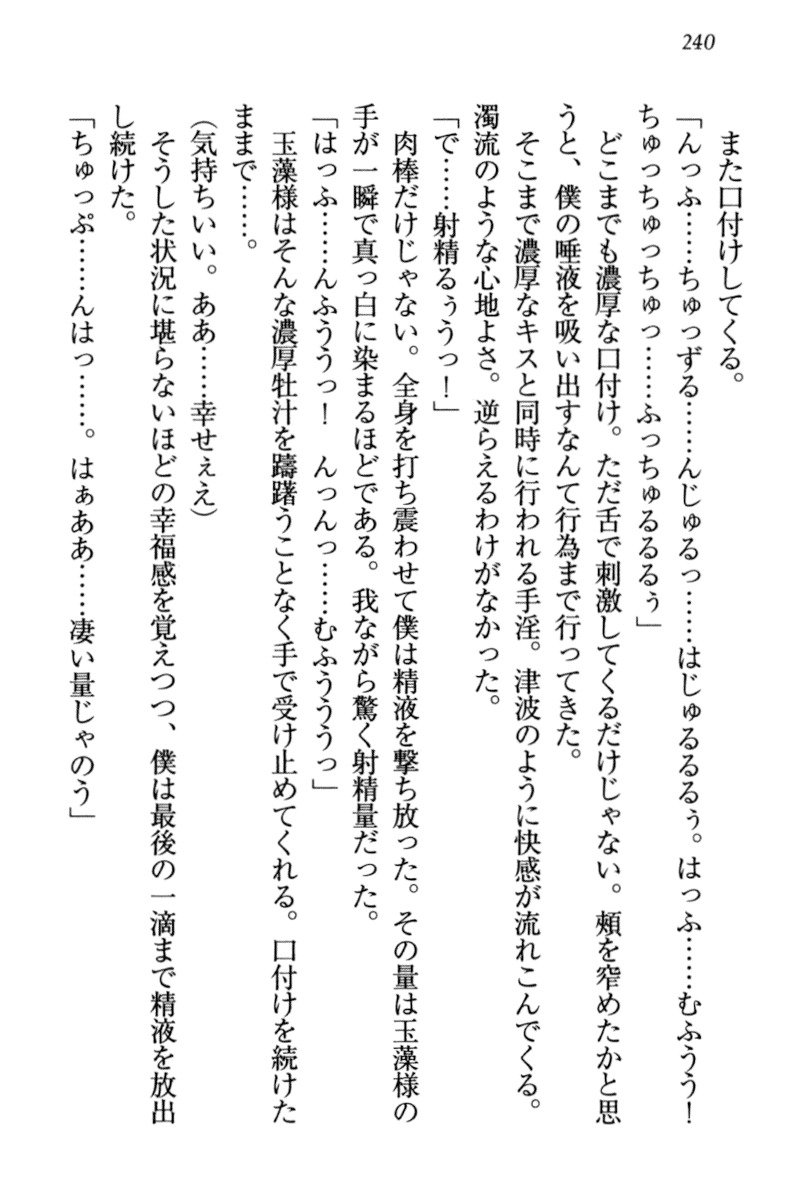 240
また口付けしてくる。
「んっふ……ちゅっずる……んじゅるっ……はじゅるるるぅ。はっふ……むふうう！
ちゅっちゅっちゅっ……ふっちゅるるるぅ」
どこまでも濃厚な口付け。ただ舌で刺激してくるだけじゃない。頰を窄めたかと思
うと、僕の唾液を吸い出すなんて行為まで行ってきた。
そこまで濃厚なキスと同時に行われる手淫。津波のように快感が流れこんでくる。
濁流のような心地よさ。逆らえるわけがなかった。
「で……射精るぅうっ！」
肉棒だけじゃない。全身を打ち震わせて僕は精液を撃ち放った。その量は玉藻様の
手が一瞬で真っ白に染まるほどである。我ながら驚く射精量だった。
「はっふ……んふううっ！　んっんっ……むふうううっ」
玉藻様はそんな濃厚牡汁を躊躇うことなく手で受け止めてくれる。口付けを続けた
ままで……。
（気持ちいい。ああ……幸せぇえ）
そうした状況に堪らないほどの幸福感を覚えつつ、僕は最後の一滴まで精液を放出
し続けた。
「ちゅっぷ……んはっ……。はぁああ……凄い量じゃのう」